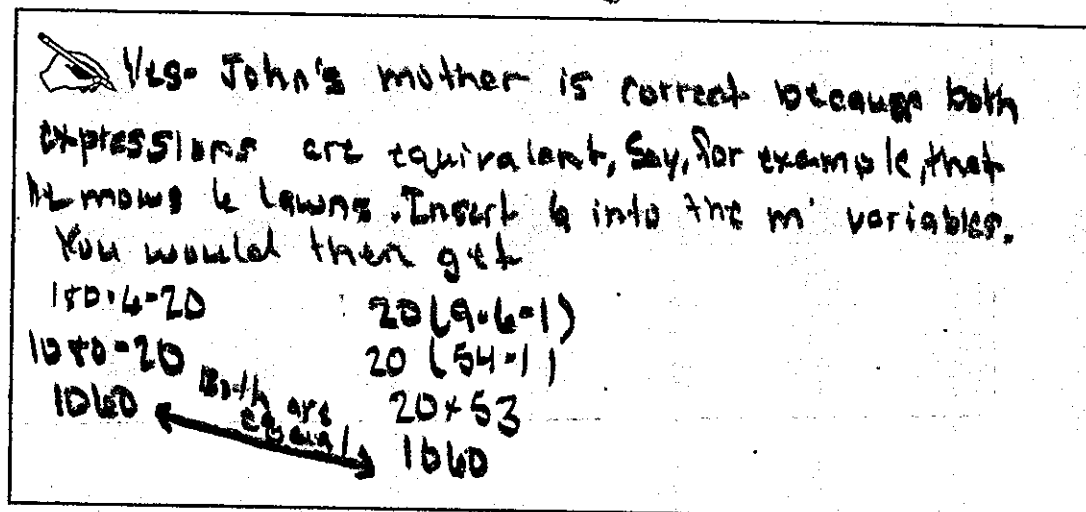 Yes- John's mother is correct because both
expressions are equivalent, Say, for example, that
he mows 6 lawns. Insert 6 into the m' variables.
You would then get
180·6-20 20(9·6-1)
1080-20 20(54-1)
1060 Both are equal 20×53
1060